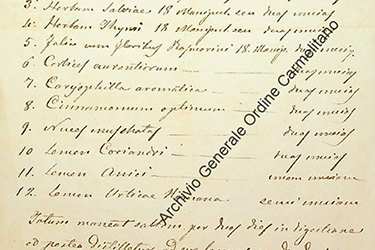 3. Herbam Salviae 18 Manipul. seu duas uncias
4. Herbam Thymi 18 Manipul. seu duas uncias
5. Folia cum floribus Rosmarini 18. Manip. duas uncias
6 Cortices aurantiorum duas uncias
7. Caryophilla aromatica duas uncias
8. Cinnamomum optimum duas uncias
9. Nuces muschatas duas uncias
10 Semen Coriandri duas uncias
11. Semen Anici unam unciam
12. Semen Urticae Romana semi unciam
Totum maneat saltem per duos dies in digestione
et postea distilletur
Archivio Generale Ordine Carmelitano